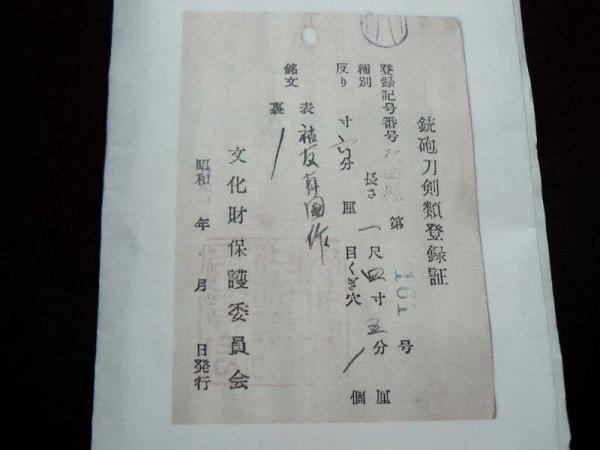 銃砲刀剣類登録証
登録記号番号 秋田県 第 161 号
種別 長さ 一尺四寸五分 厘
反り 寸 分 厘 目くぎ穴 1 個
銘文 表
裏 /
文化財保護委員会
昭和 年 月 日発行